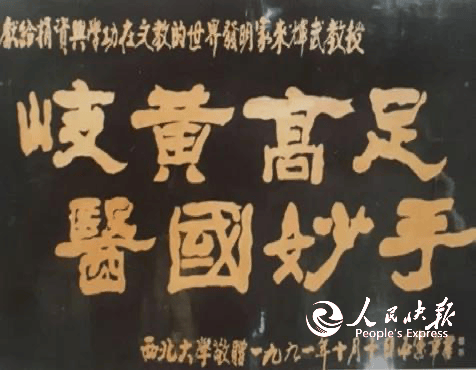 獻給捐資興學功在文教的世界發明家來輝武教授
岐黃高足
醫國妙手
人民快報
People's Express
西北大學敬贈一九九一年十月十日